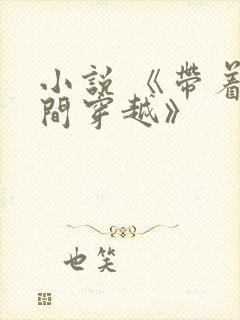 小說《帶着
間穿越》
也笑